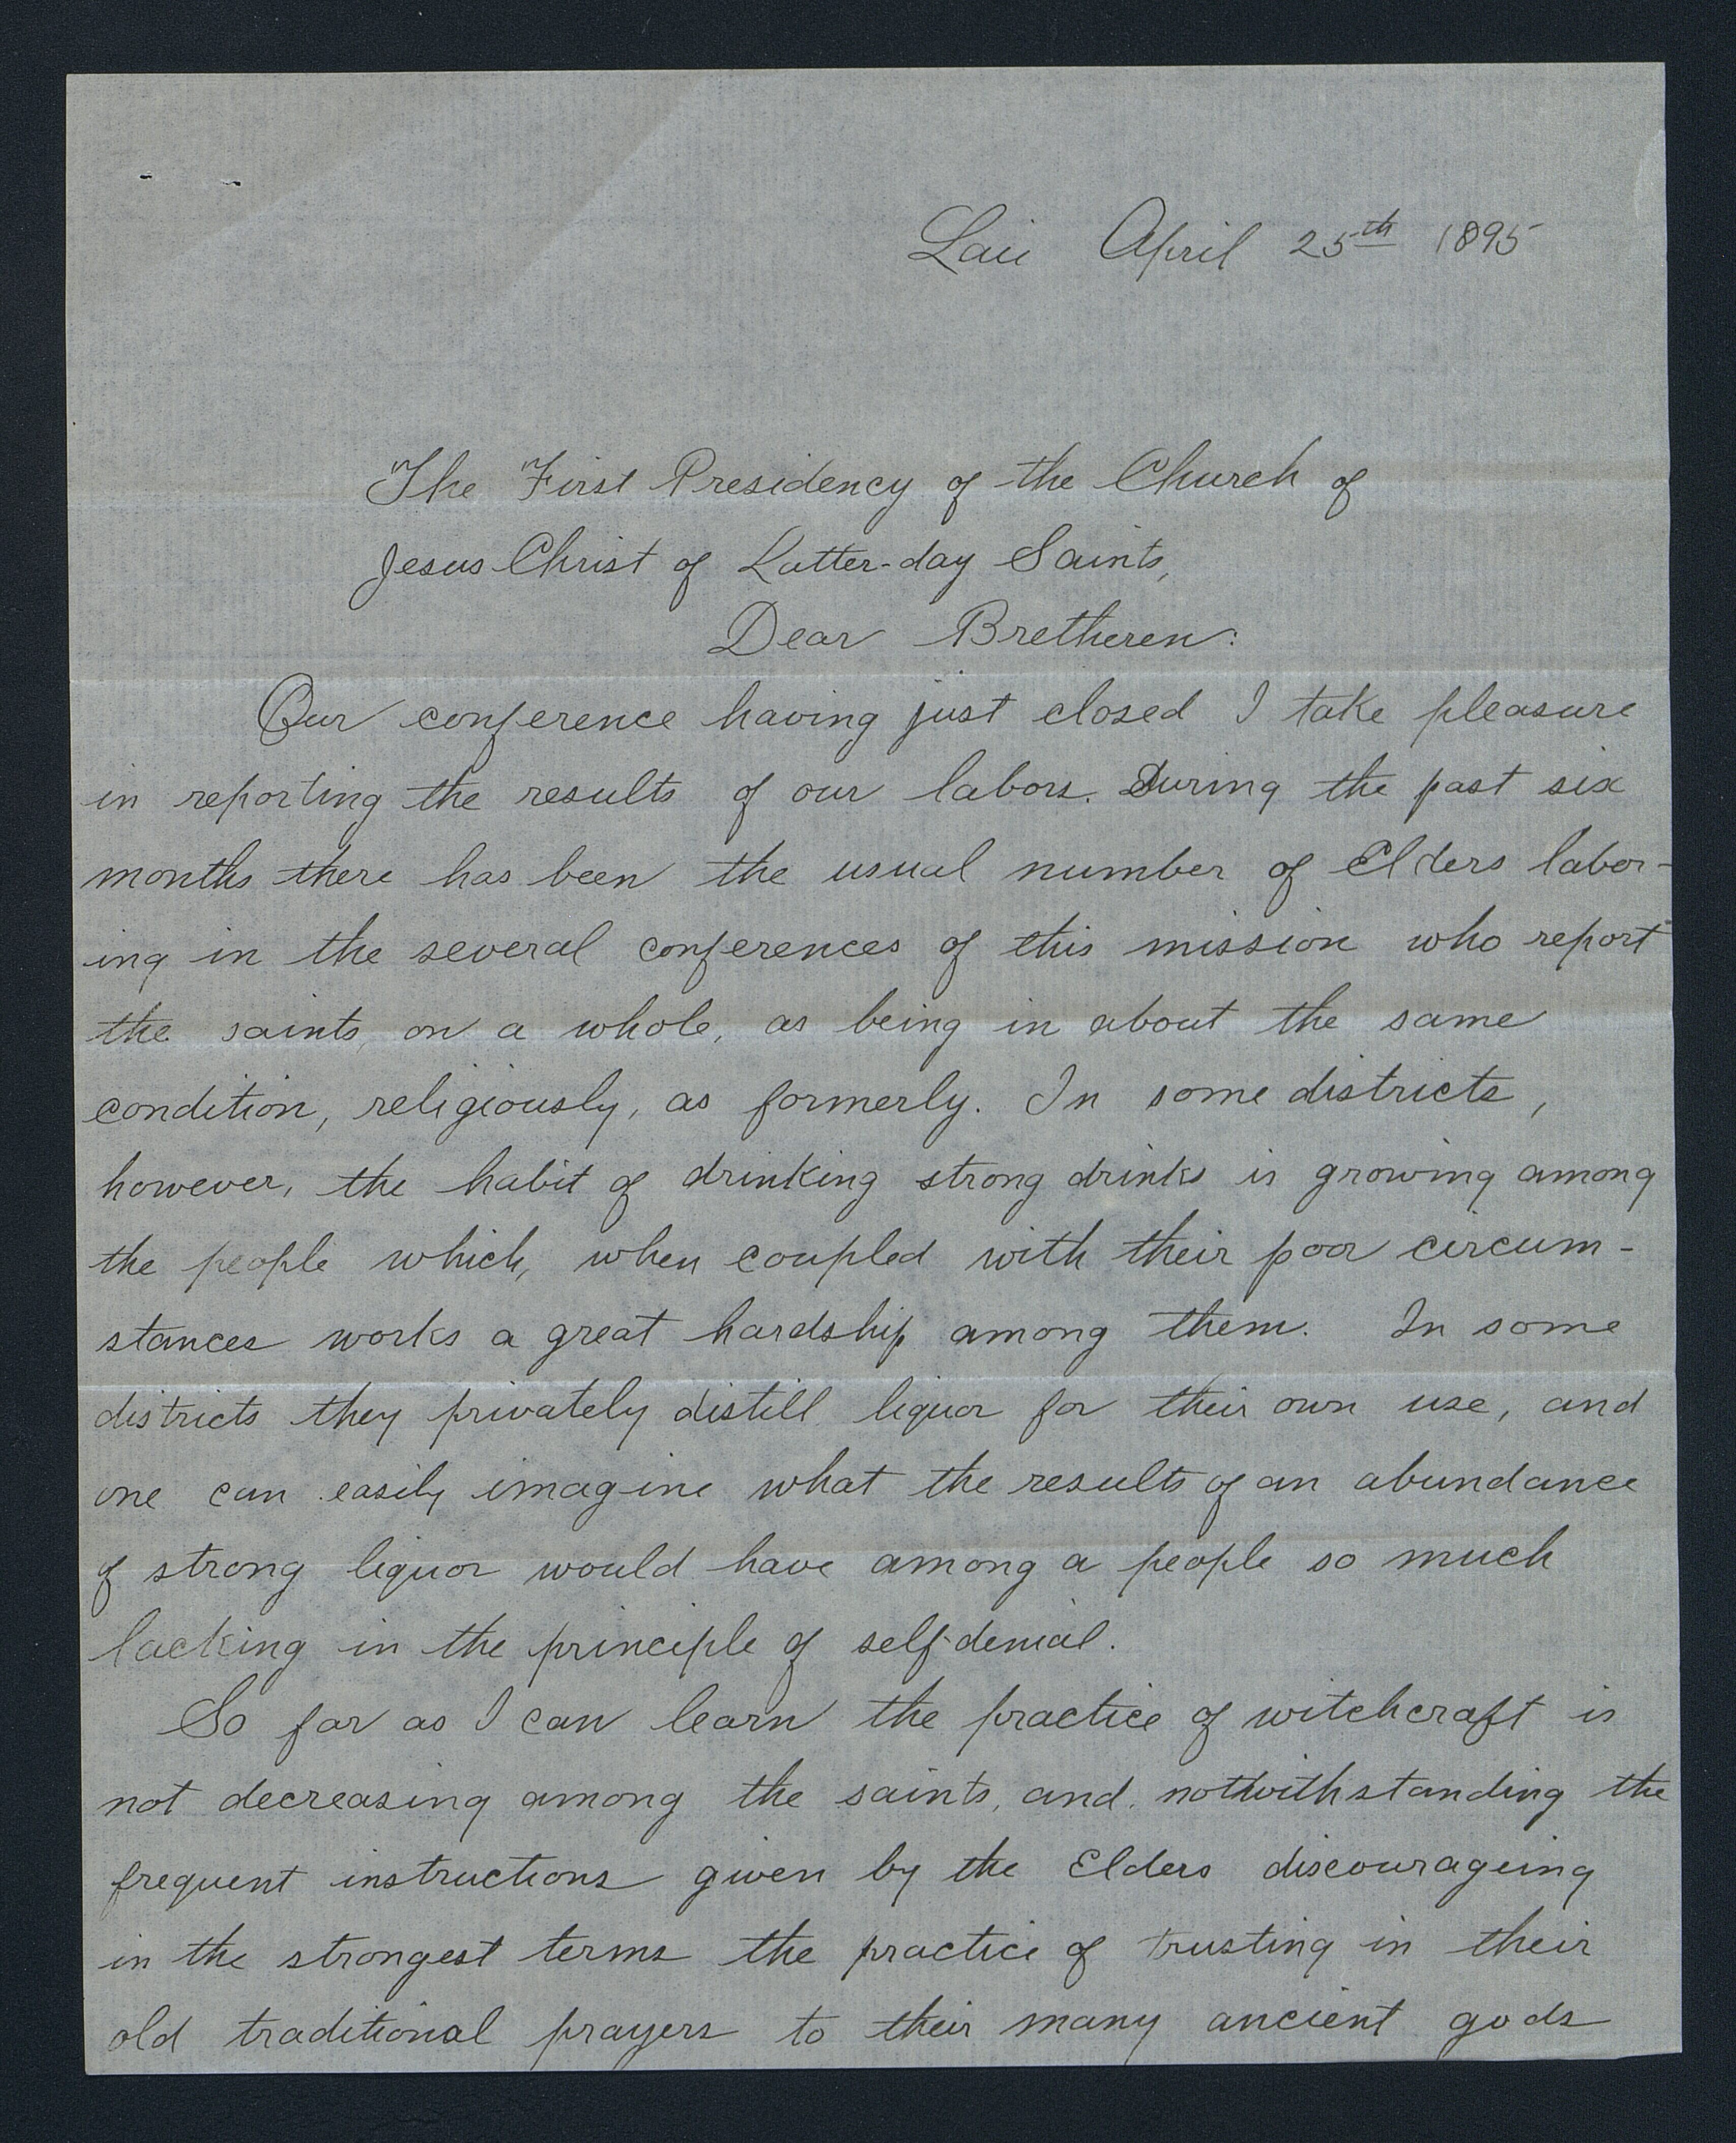 Laie April 25th 1895
The First Presidency of the Church of
Jesus Christ of Latter-day Saints,
Dear Bretheren:
Our conference having just closed I take pleasure
in reporting the results of our labors. During the past six
months there has been the usual number of Elders labor-
ing in the several conferences of this mission who report
the saints, on a whole, as being in about the same
condition, religiously, as formerly. In some districts,
however, the habit of drinking strong drinks is growing among
the people which, when coupled with their poor circum-
stances works a great hardship among them. In some
districts they privately distill liquor for their own use, and
one can easily imagine what the results of an abundance
of strong liquor would have among a people so much
lacking in the principle of self-denial.
So far as I can learn the practice of witchcraft is
not decreasing among the saints, and, notwithstanding the
frequent instructions given by the Elders discourageing
in the strongest terms the practice of trusting in their
old traditional prayers to their many ancient gods